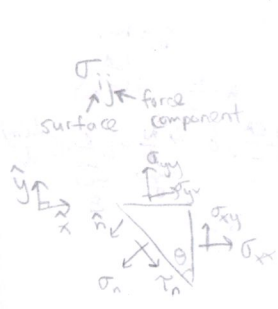 σij
surface force component
σyy
σyx
ŷ
x̂
n̂
σxy
σxx
θ
σn
τn